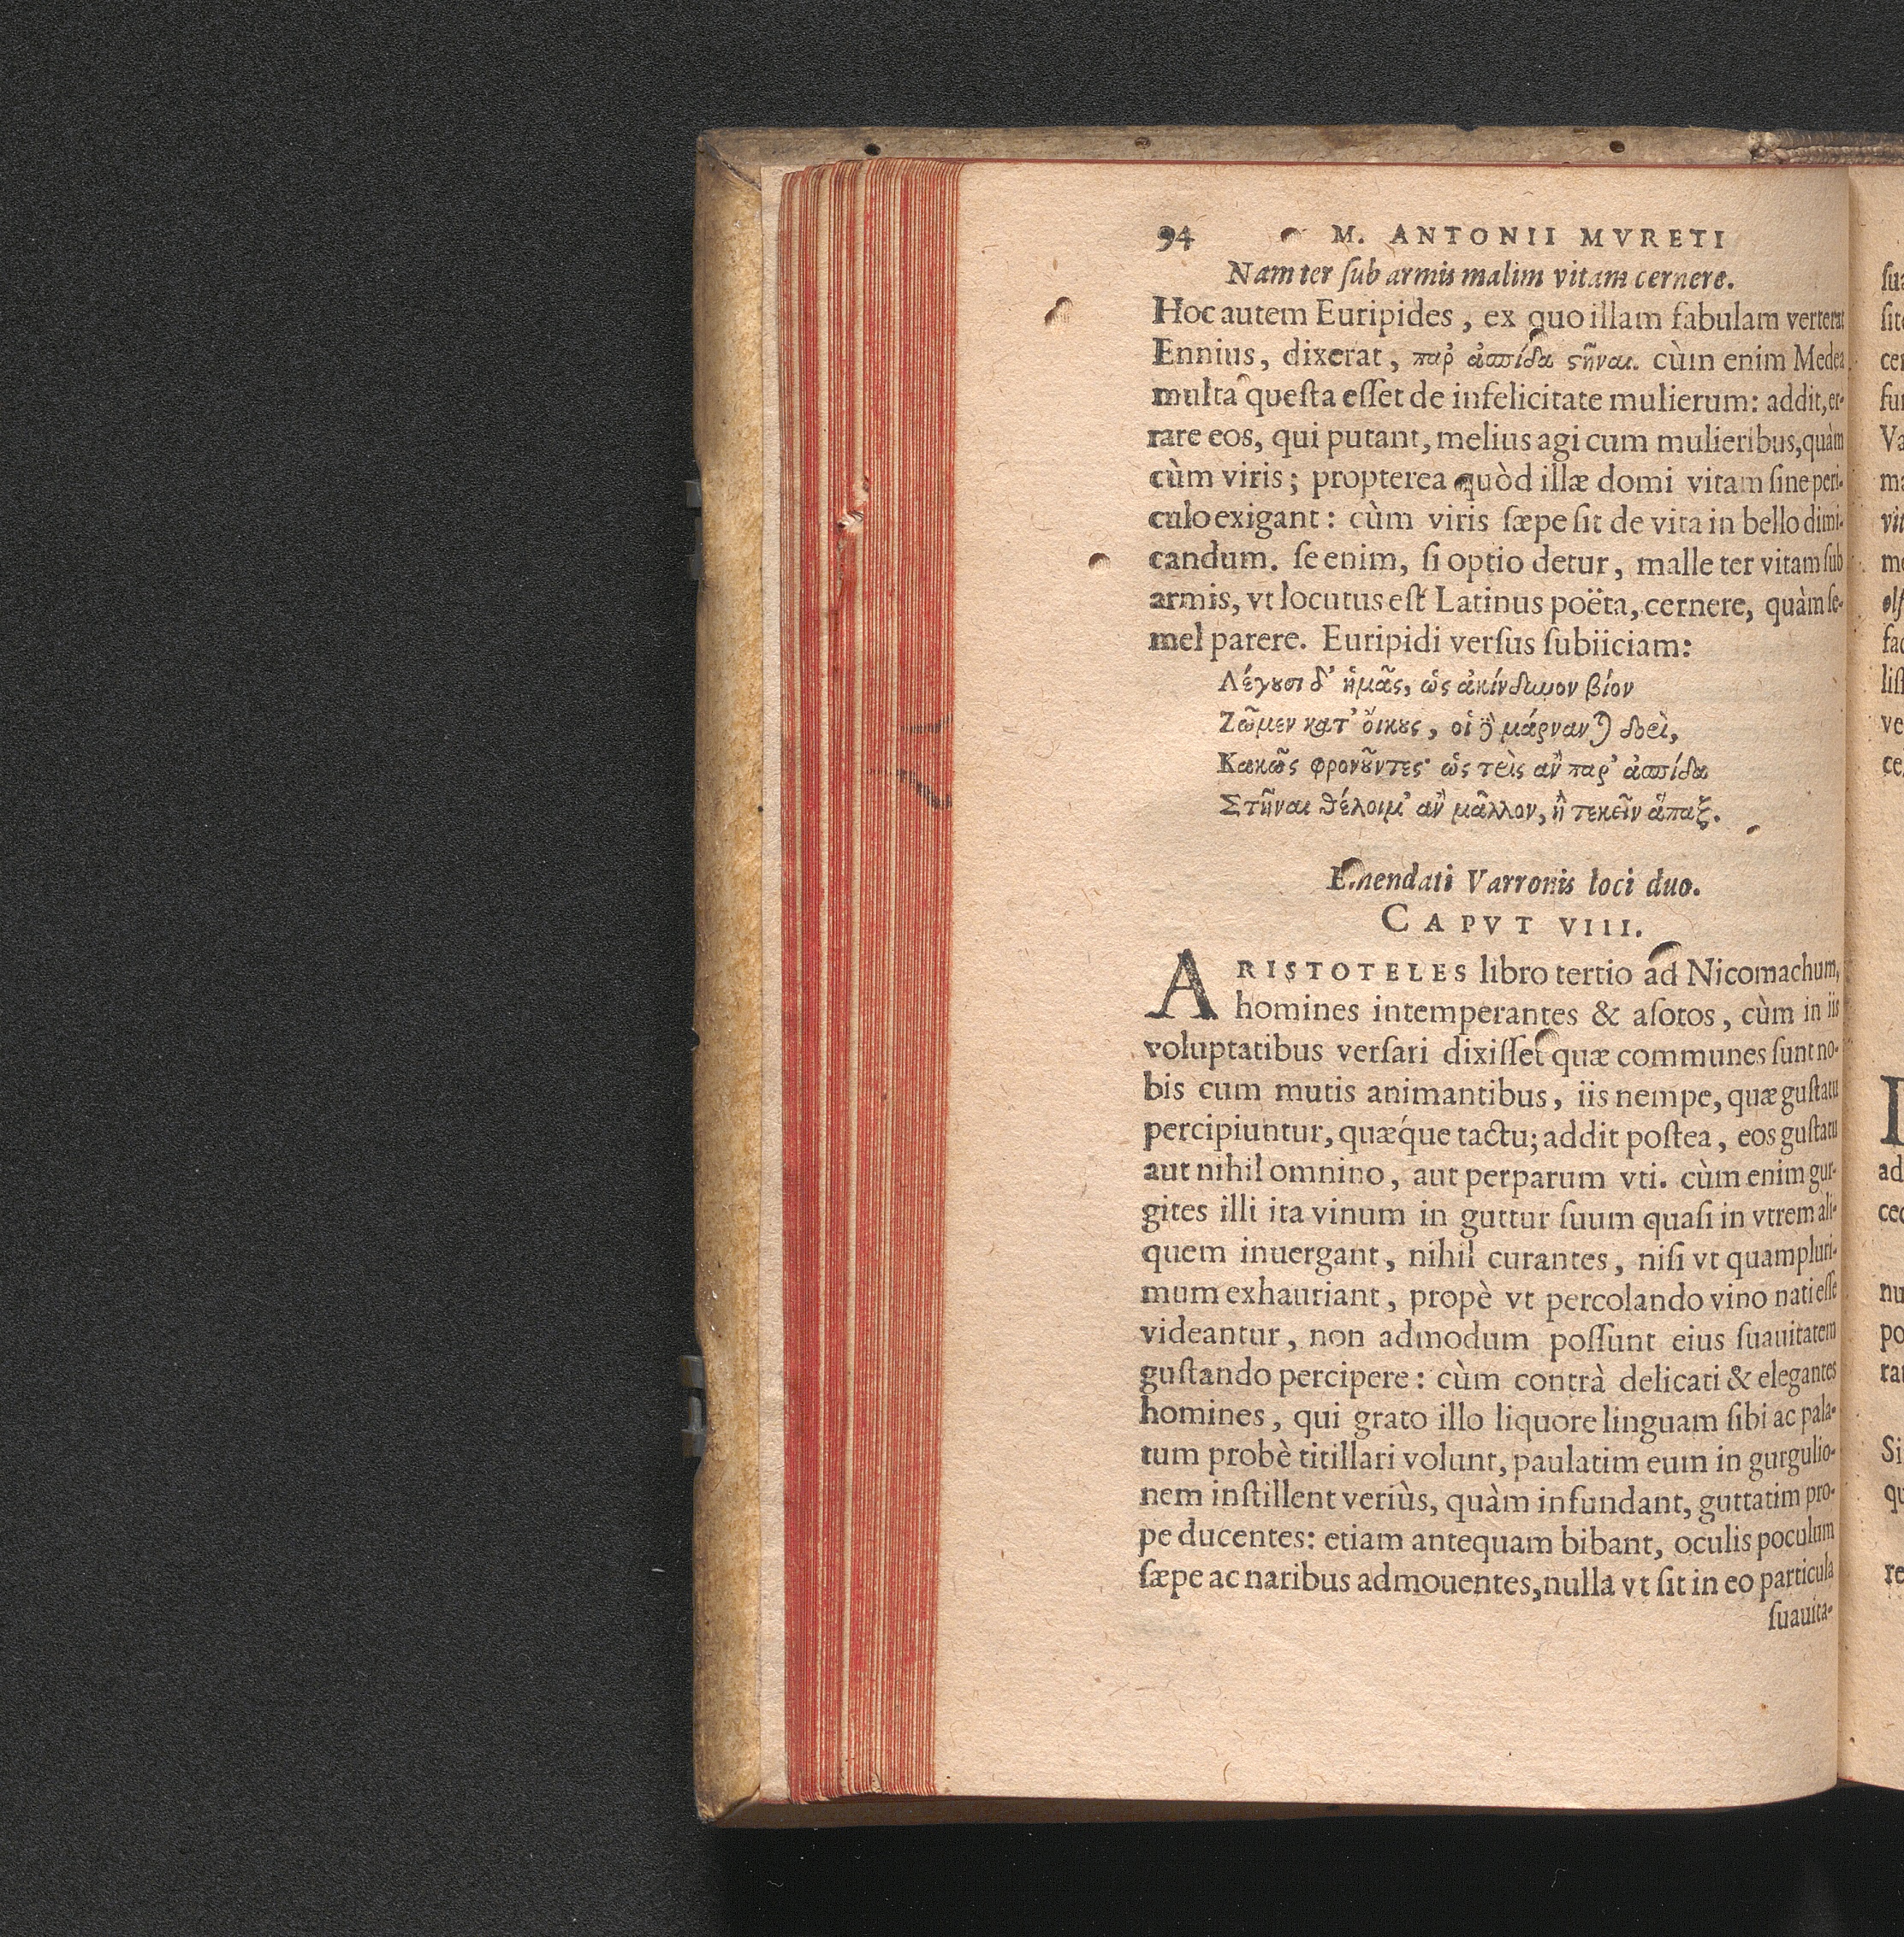 94 M. ANTONII MVRETI
Nam ter ſub armis malim vitam cernere.
Hoc autem Euripides, ex quo illam fabulam verterat
Ennius, dixerat, παρ' ἀσπίδα ςῆναι. cùm enim Medea
multa queſta eſſet de infelicitate mulierum: addit, er-
rare eos, qui putant, melius agi cum mulieribus, quàm
cùm viris; propterea quòd illæ domi vitam ſine peri-
culo exigant: cùm viris ſæpe ſit de vita in bello dimi-
candum. ſe enim, ſi optio detur, malle ter vitam ſub
armis, vt locutus eſt Latinus poëta, cernere, quàm ſe-
mel parere. Euripidi verſus ſubiiciam:
Λέγουσι δ' ἡμᾶς, ὡς ἀκίνδυνον βίον
Ζῶμεν κατ' οἴκους, οἱ δὲ μάρνανται δορὶ,
Κακῶς φρονοῦντες· ὡς τρὶς ἂν παρ' ἀσπίδα
Στῆναι θέλοιμ' ἂν μᾶλλον, ἢ τεκεῖν ἅπαξ.
Emendati Varronis loci duo.
CAPVT VIII.
ARISTOTELES libro tertio ad Nicomachum,
homines intemperantes & aſotos, cùm in iis
voluptatibus verſari dixiſſet quæ communes ſunt no-
bis cum mutis animantibus, iis nempe, quæ guſtatu
percipiuntur, quæque tactu; addit poſtea, eos guſtatu
aut nihil omnino, aut perparum vti. cùm enim gur-
gites illi ita vinum in guttur ſuum quaſi in vtrem ali-
quem inuergant, nihil curantes, niſi vt quampluri-
mum exhauriant, propè vt percolando vino nati eſſe
videantur, non admodum poſſunt eius ſuauitatem
guſtando percipere: cùm contrà delicati & elegantes
homines, qui grato illo liquore linguam ſibi ac pala-
tum probè titillari volunt, paulatim eum in gurgulio-
nem inſtillent veriùs, quàm infundant, guttatim pro-
pe ducentes: etiam antequam bibant, oculis poculum
ſæpe ac naribus admouentes, nulla vt ſit in eo particula
ſuauita-